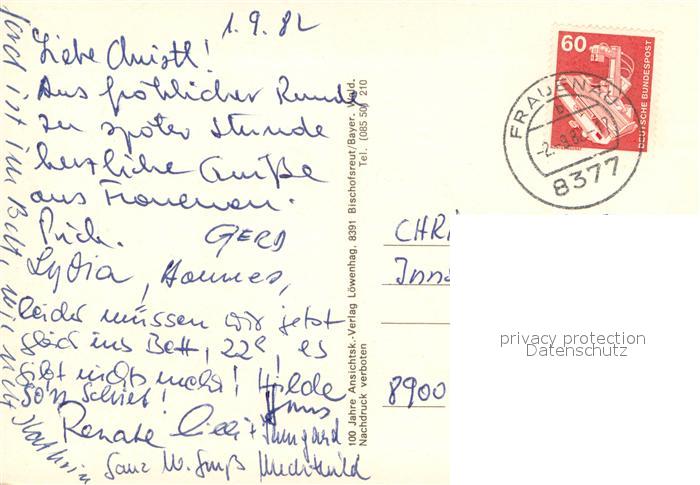 1.9.82
Liebe Christl!
Aus fröhlicher Runde
zu später Stunde
herzliche Grüße
aus Frauenau.
GERD
Lydia, Hannes,
leider müssen wir jetzt
gleich ins Bett, 22h, es
gibt nichts mehr! Hilde
Hans
Renate Irmgard
Ganz lb. Gruß Mechthild
Gerd ist im Bett, wir nicht Kathrin
100 Jahre Ansichtsk.-Verlag Löwenhag, 8391 Bischofsreut/Bayer. Wald.
Nachdruck verboten Tel. (085 50) 210
60
DEUTSCHE BUNDESPOST
FRAUENAU
8377
CHRI
Inns
8900
privacy protection
Datenschutz